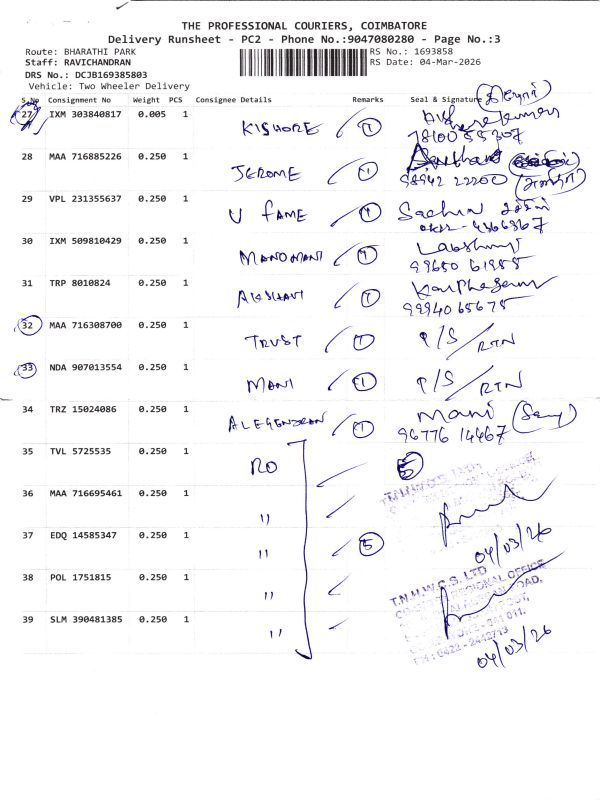 THE PROFESSIONAL COURIERS, COIMBATORE
Delivery Runsheet - PC2 - Phone No.:9047080280 - Page No.:3
Route: BHARATHI PARK RS No.: 1693858
Staff: RAVICHANDRAN RS Date: 04-Mar-2026
DRS No.: DCJB169385803
Vehicle: Two Wheeler Delivery
S.No Consignment No Weight PCS Consignee Details Remarks Seal & Signature
27 IXM 303840817 0.005 1 KISHORE 1
7810055307
28 MAA 716885226 0.250 1 JEROME 1
98942 22200
29 VPL 231355637 0.250 1 U FAME 1 Sachin
30 IXM 509810429 0.250 1 MANOMANI 1
99650 61955
31 TRP 8010824 0.250 1 1
9994065675
32 MAA 716308700 0.250 1 TRUST 1 P/S/RTN
33 NDA 907013554 0.250 1 MANI 1 P/S/RTN
34 TRZ 15024086 0.250 1 ALEGENDRAN 1 Mani
96776 14467
35 TVL 5725535 0.250 1 RO 5
36 MAA 716695461 0.250 1 "
37 EDQ 14585347 0.250 1 " 5
04/03/26
38 POL 1751815 0.250 1 "
T.N.H.W.C.S. LTD
REGIONAL OFFICE
ROAD,
39 SLM 390481385 0.250 1 "
641 011.
PH : 0422 - 2442713
04/03/26